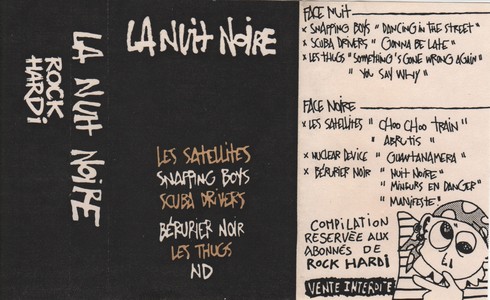 LA NUIT NOIRE
ROCK
HARDI
LA NUIT NOIRE
LES SATELLITES
SNAPPING BOYS
SCUBA DRIVERS
BÉRURIER NOIR
LES THUGS
ND
FACE NUIT
x SNAPPING BOYS "DANCING IN THE STREET"
x SCUBA DRIVERS "GONNA BE LATE"
x LES THUGS "SOMETHING'S GONE WRONG AGAIN"
" YOU SAY WHY "
FACE NOIRE
x LES SATELLITES " CHOO CHOO TRAIN "
" ABRUTIS "
x NUCLEAR DEVICE " GUANTANAMERA "
x BÉRURIER NOIR " NUIT NOIRE "
" MINEURS EN DANGER "
" MANIFESTE "
COMPILATION
RESERVÉE AUX
ABONNÉS DE
ROCK HARDI
VENTE INTERDITE